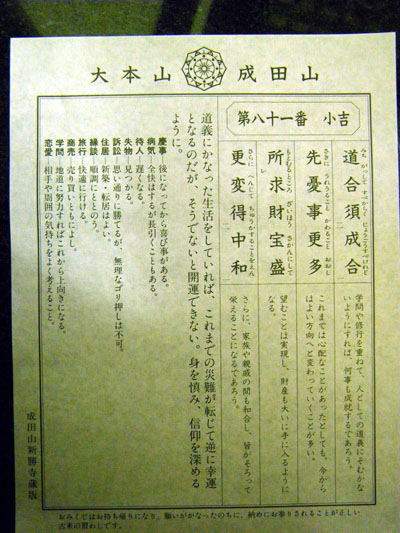 大本山 成田山
第八十一番 小吉
道合須成合
学問や修行を重ねて、人としての道義にそむかな
いようにすれば、何事も成就するであろう。
さきに うれうること かわること おおし
先憂事更多
これまでは心配なことがあったとしても、今から
はよい方向へと変わっていくことが多い。
もとむるところ ざいほう さかんにして
所求財宝盛
望むことは実現し、財産も大いに手に入るように
なる。
更変得中和
さらに、家族や親戚の間も和合し、皆がそろって
栄えることになるであろう。
道義にかなった生活をしていれば、これまでの災難が転じて逆に幸運
となるのだが、そうでないと開運できない。身を慎み、信仰を深める
ように。
慶事―後になってから喜び事がある。
病気―全快はするが長引くこともある。
待人―遅くなる。
失物―見つかる。
訴訟―思い通りに勝てるが、無理なゴリ押しは不可。
住居―新築・転居はよい。
縁談―順調にととのう。
旅行―快適に行ける。
商売―売り買いともによし。
学問―地道に努力すればこれから上向きになる。
恋愛―相手や周囲の気持ちをよく考えること。
成田山新勝寺蔵版
おみくじはお持ち帰りになり、願いがかなったのちに、納めにお参りされることが正しい
古来の習わしです。